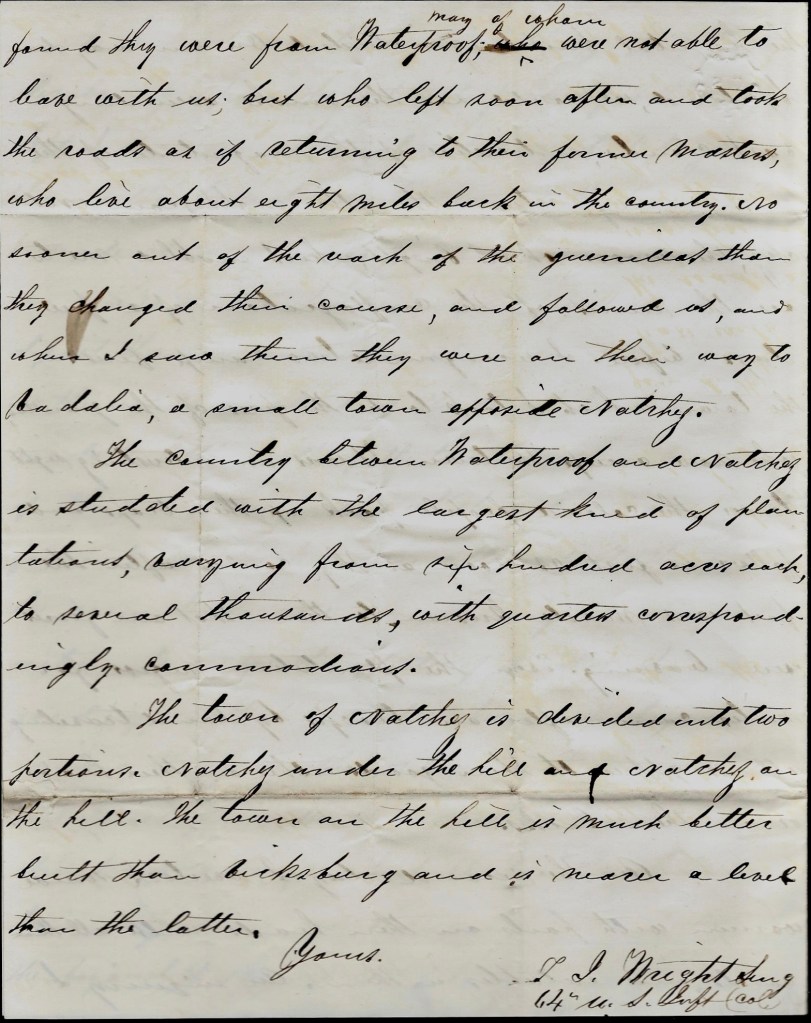 many of whom
found they were from Waterproof; who were not able to
leave with us; but who left soon after and took
the roads as if returning to their former Masters,
who live about eight miles back in the country. No
sooner out of the reach of the guerrillas than
they changed their course, and followed us, and
when I saw them they were on their way to
Vadalia, a small town opposide Natchez.
The country between Waterproof and Natchez
is studded with the largest kind of plan
tations, varying from six hundred acres each,
to several thousands, with quarters correspond-
ingly commodious.
The town of Natchez is devided into two
portions. Natchez under the hill and Natchez on
the hill. The town on the hill is much better
built than Vicksburg and is nearer a level
than the latter.
Yours.
J. J. Wright Surg
64th U. S. Inft (col)